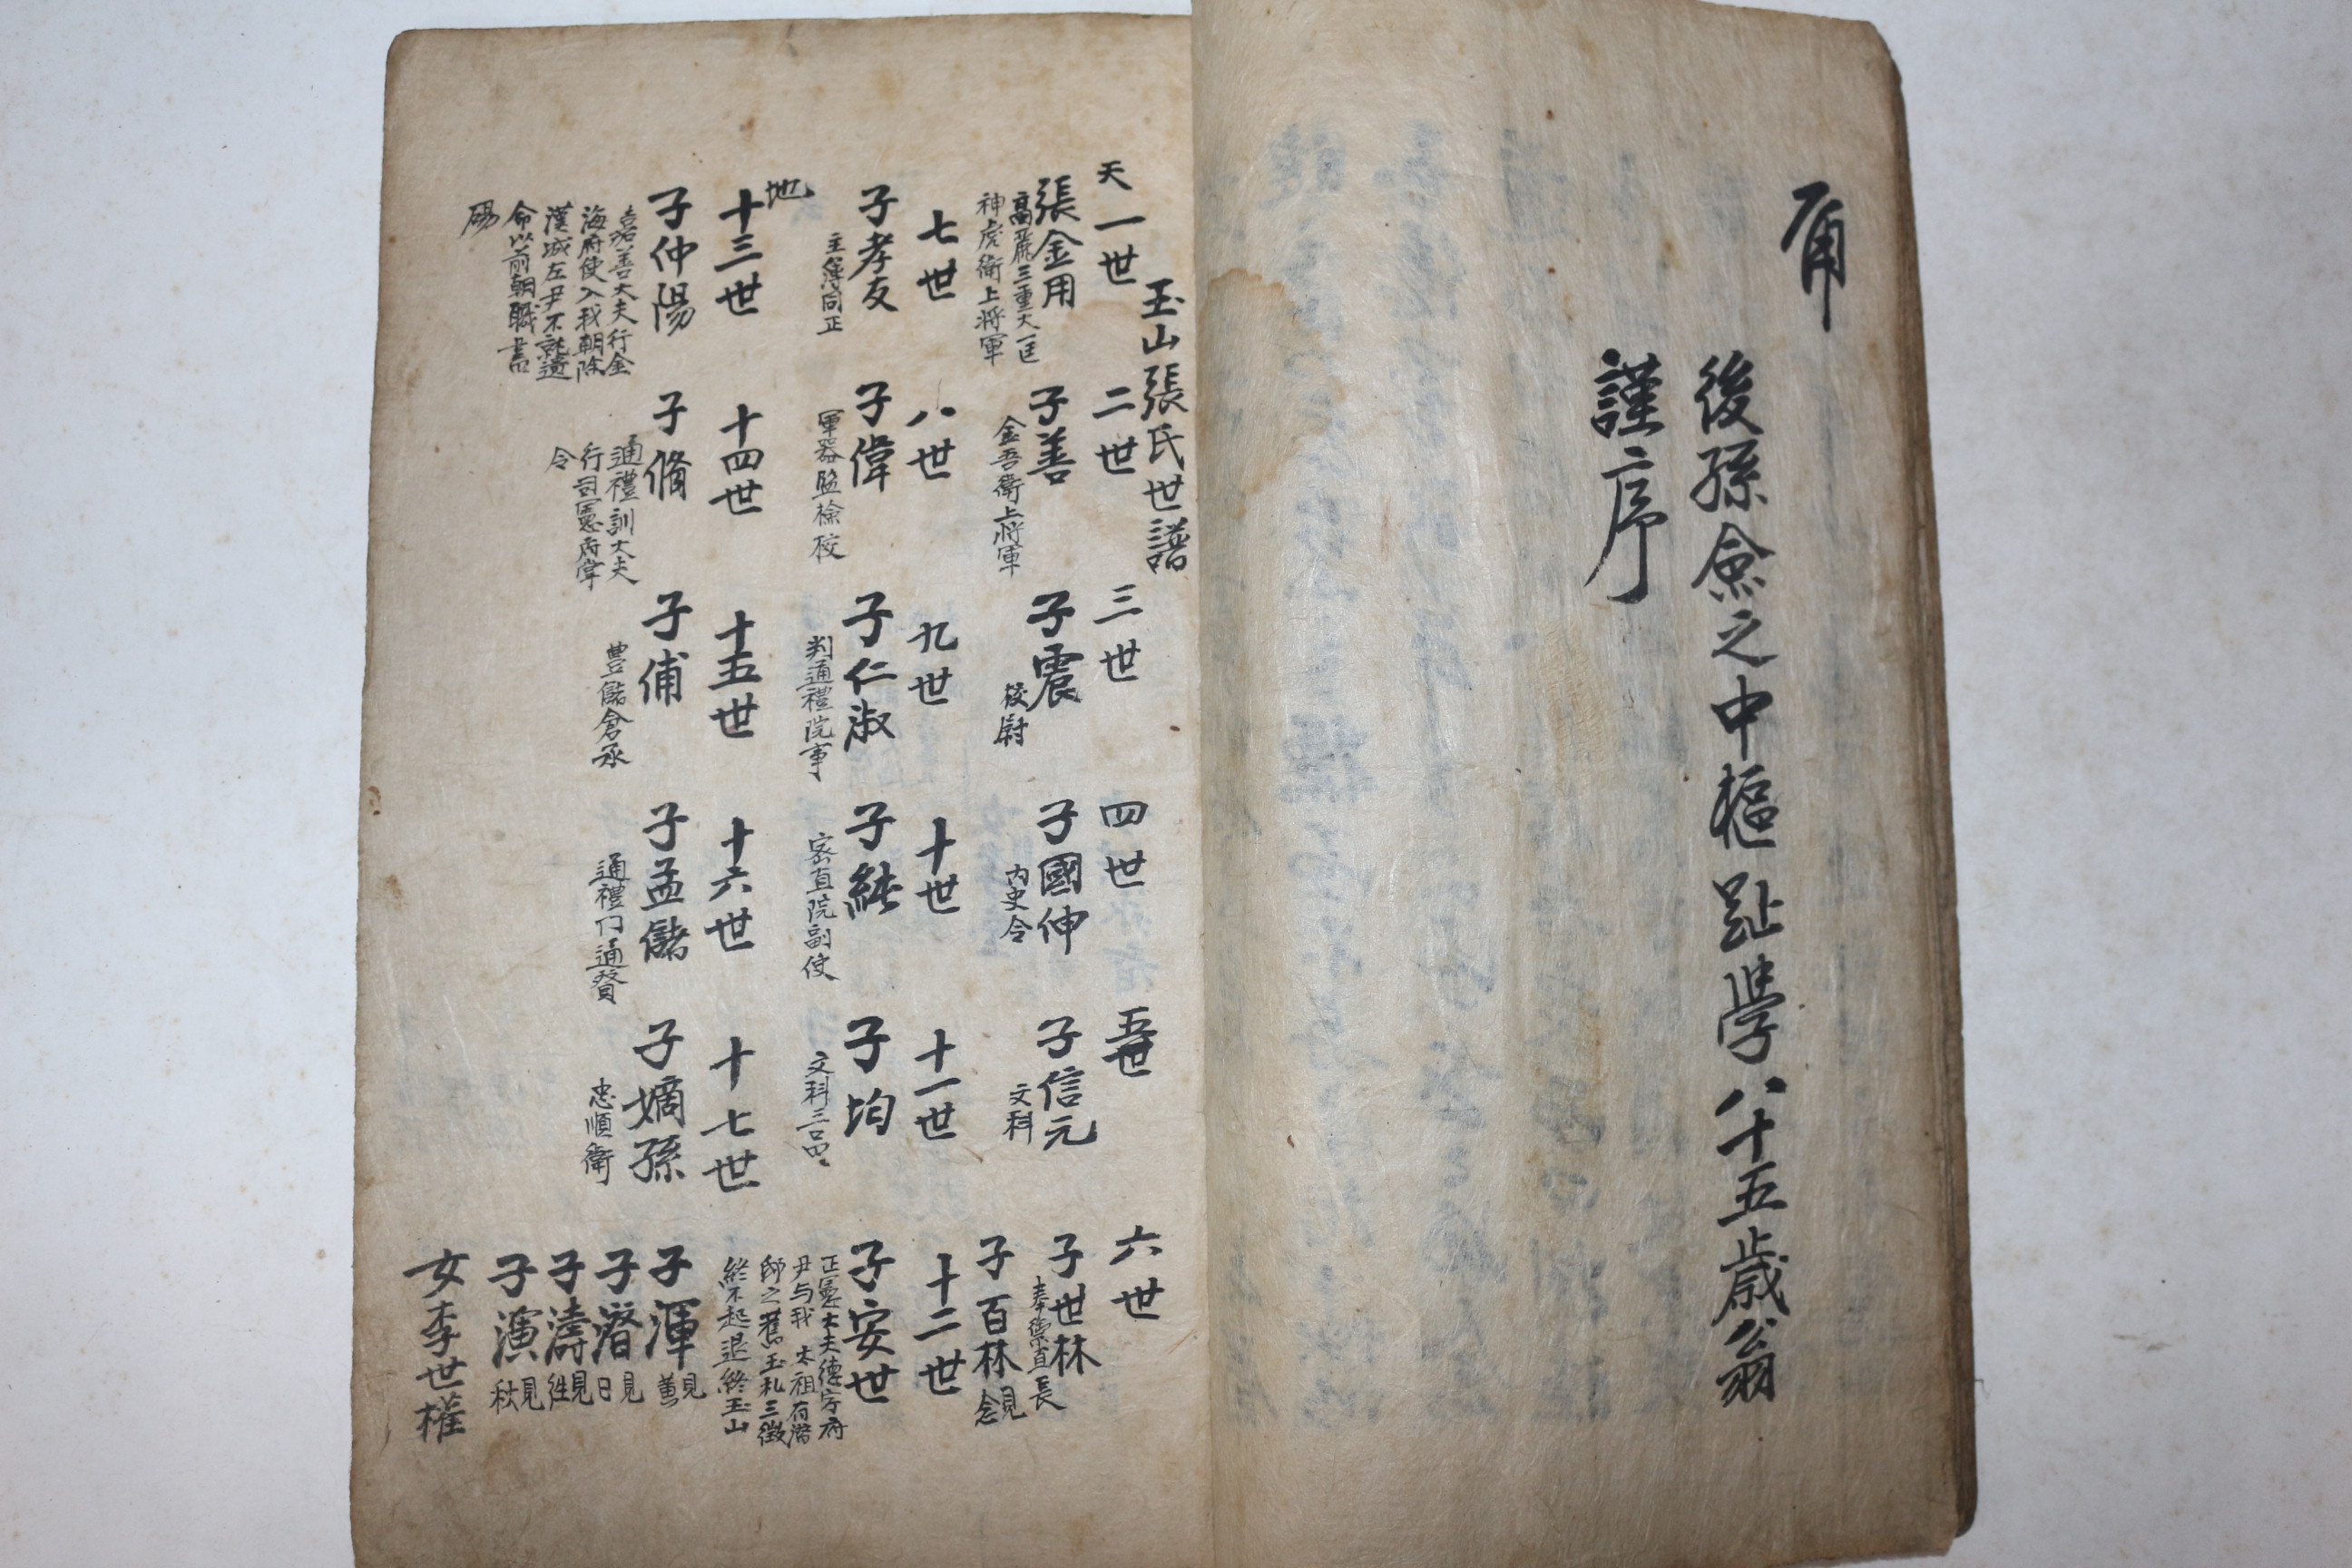 甭
後孫僉之中樞趾學八十五歲翁
謹序
玉山張氏世譜
天
一世
二世
三世
四世
五世
六世
張金用
高麗三重大匡
神虎衛上將軍
子善
金吾衛上將軍
子震
校尉
子國伸
內史令
子信元
文科
子世林
奉御直長
子百林
見念
七世
八世
九世
十世
十一世
十二世
子孝友
主簿同正
子偉
軍器監檢校
子仁淑
判通禮院事
子純
密直院副使
子均
文科三品
子安世
正憲大夫德寧府
尹与我 太祖有潛
邸之舊玉札三徵
終不起退終玉山
地
十三世
十四世
十五世
十六世
十七世
子仲陽
嘉善大夫行金
海府使入我朝除
漢城左尹不就遺
命以前朝職書
碣
子脩
通禮訓大夫
行司憲府掌
令
子俌
豊儲倉丞
子孟儲
通禮門通贊
子嫡孫
忠順衛
子渾
見黃
子潛
見日
子濤
見姓
子演
見秋
女李世權